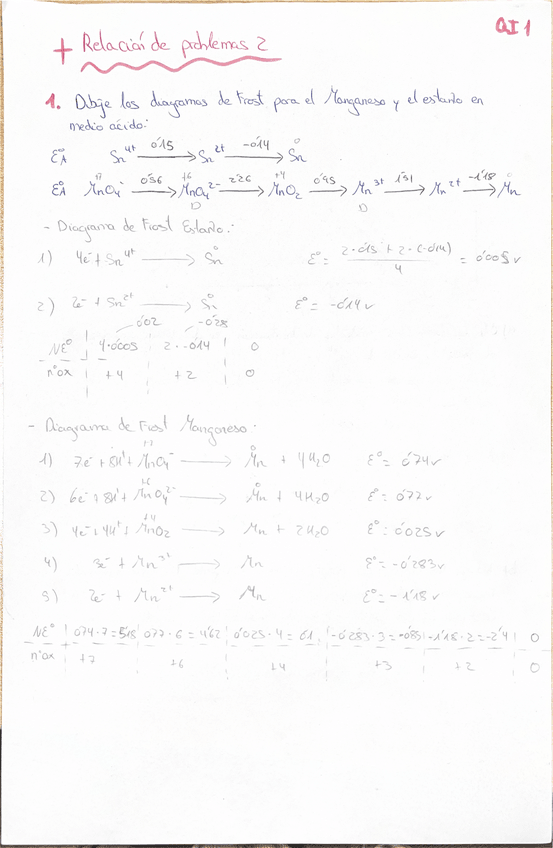 QI 1
+ Relación de problemas 2
1. Dibuje los diagramas de Frost para el Manganeso y el estaño en
medio ácido:
ƐºA Sn⁴⁺ —0'15→ Sn²⁺ —-0'14→ Sn⁰
ƐºA MnO₄⁻ (+7) —0'56→ MnO₄²⁻ (+6) —2'26→ MnO₂ (+4) —0'95→ Mn³⁺ —1'51→ Mn²⁺ —-1'18→ Mn⁰
D D
- Diagrama de Frost Estaño:
1) 4e⁻ + Sn⁴⁺ ⟶ Sn⁰ Ɛº = (2·0'15 + 2·(-0'14))/4 = 0'005 v
2) 2e⁻ + Sn²⁺ ⟶ Sn⁰ Ɛº = -0'14 v
0'02 -0'28
NEº | 4·0'005 | 2·-0'14 | 0
nºox | +4 | +2 | 0
- Diagrama de Frost Manganeso:
1) 7e⁻ + 8H⁺ + MnO₄⁻ (+7) ⟶ Mn⁰ + 4H₂O Ɛº = 0'74 v
2) 6e⁻ + 8H⁺ + MnO₄²⁻ (+6) ⟶ Mn⁰ + 4H₂O Ɛº = 0'77 v
3) 4e⁻ + 4H⁺ + MnO₂ (+4) ⟶ Mn + 2H₂O Ɛº = 0'025 v
4) 3e⁻ + Mn³⁺ ⟶ Mn Ɛº = -0'283 v
5) 2e⁻ + Mn²⁺ ⟶ Mn Ɛº = -1'18 v
NEº | 0'74·7 = 5'18 | 0'77·6 = 4'62 | 0'025·4 = 0'1 | -0'283·3 = -0'85 | -1'18·2 = -2'4 | 0
nºox | +7 | +6 | +4 | +3 | +2 | 0